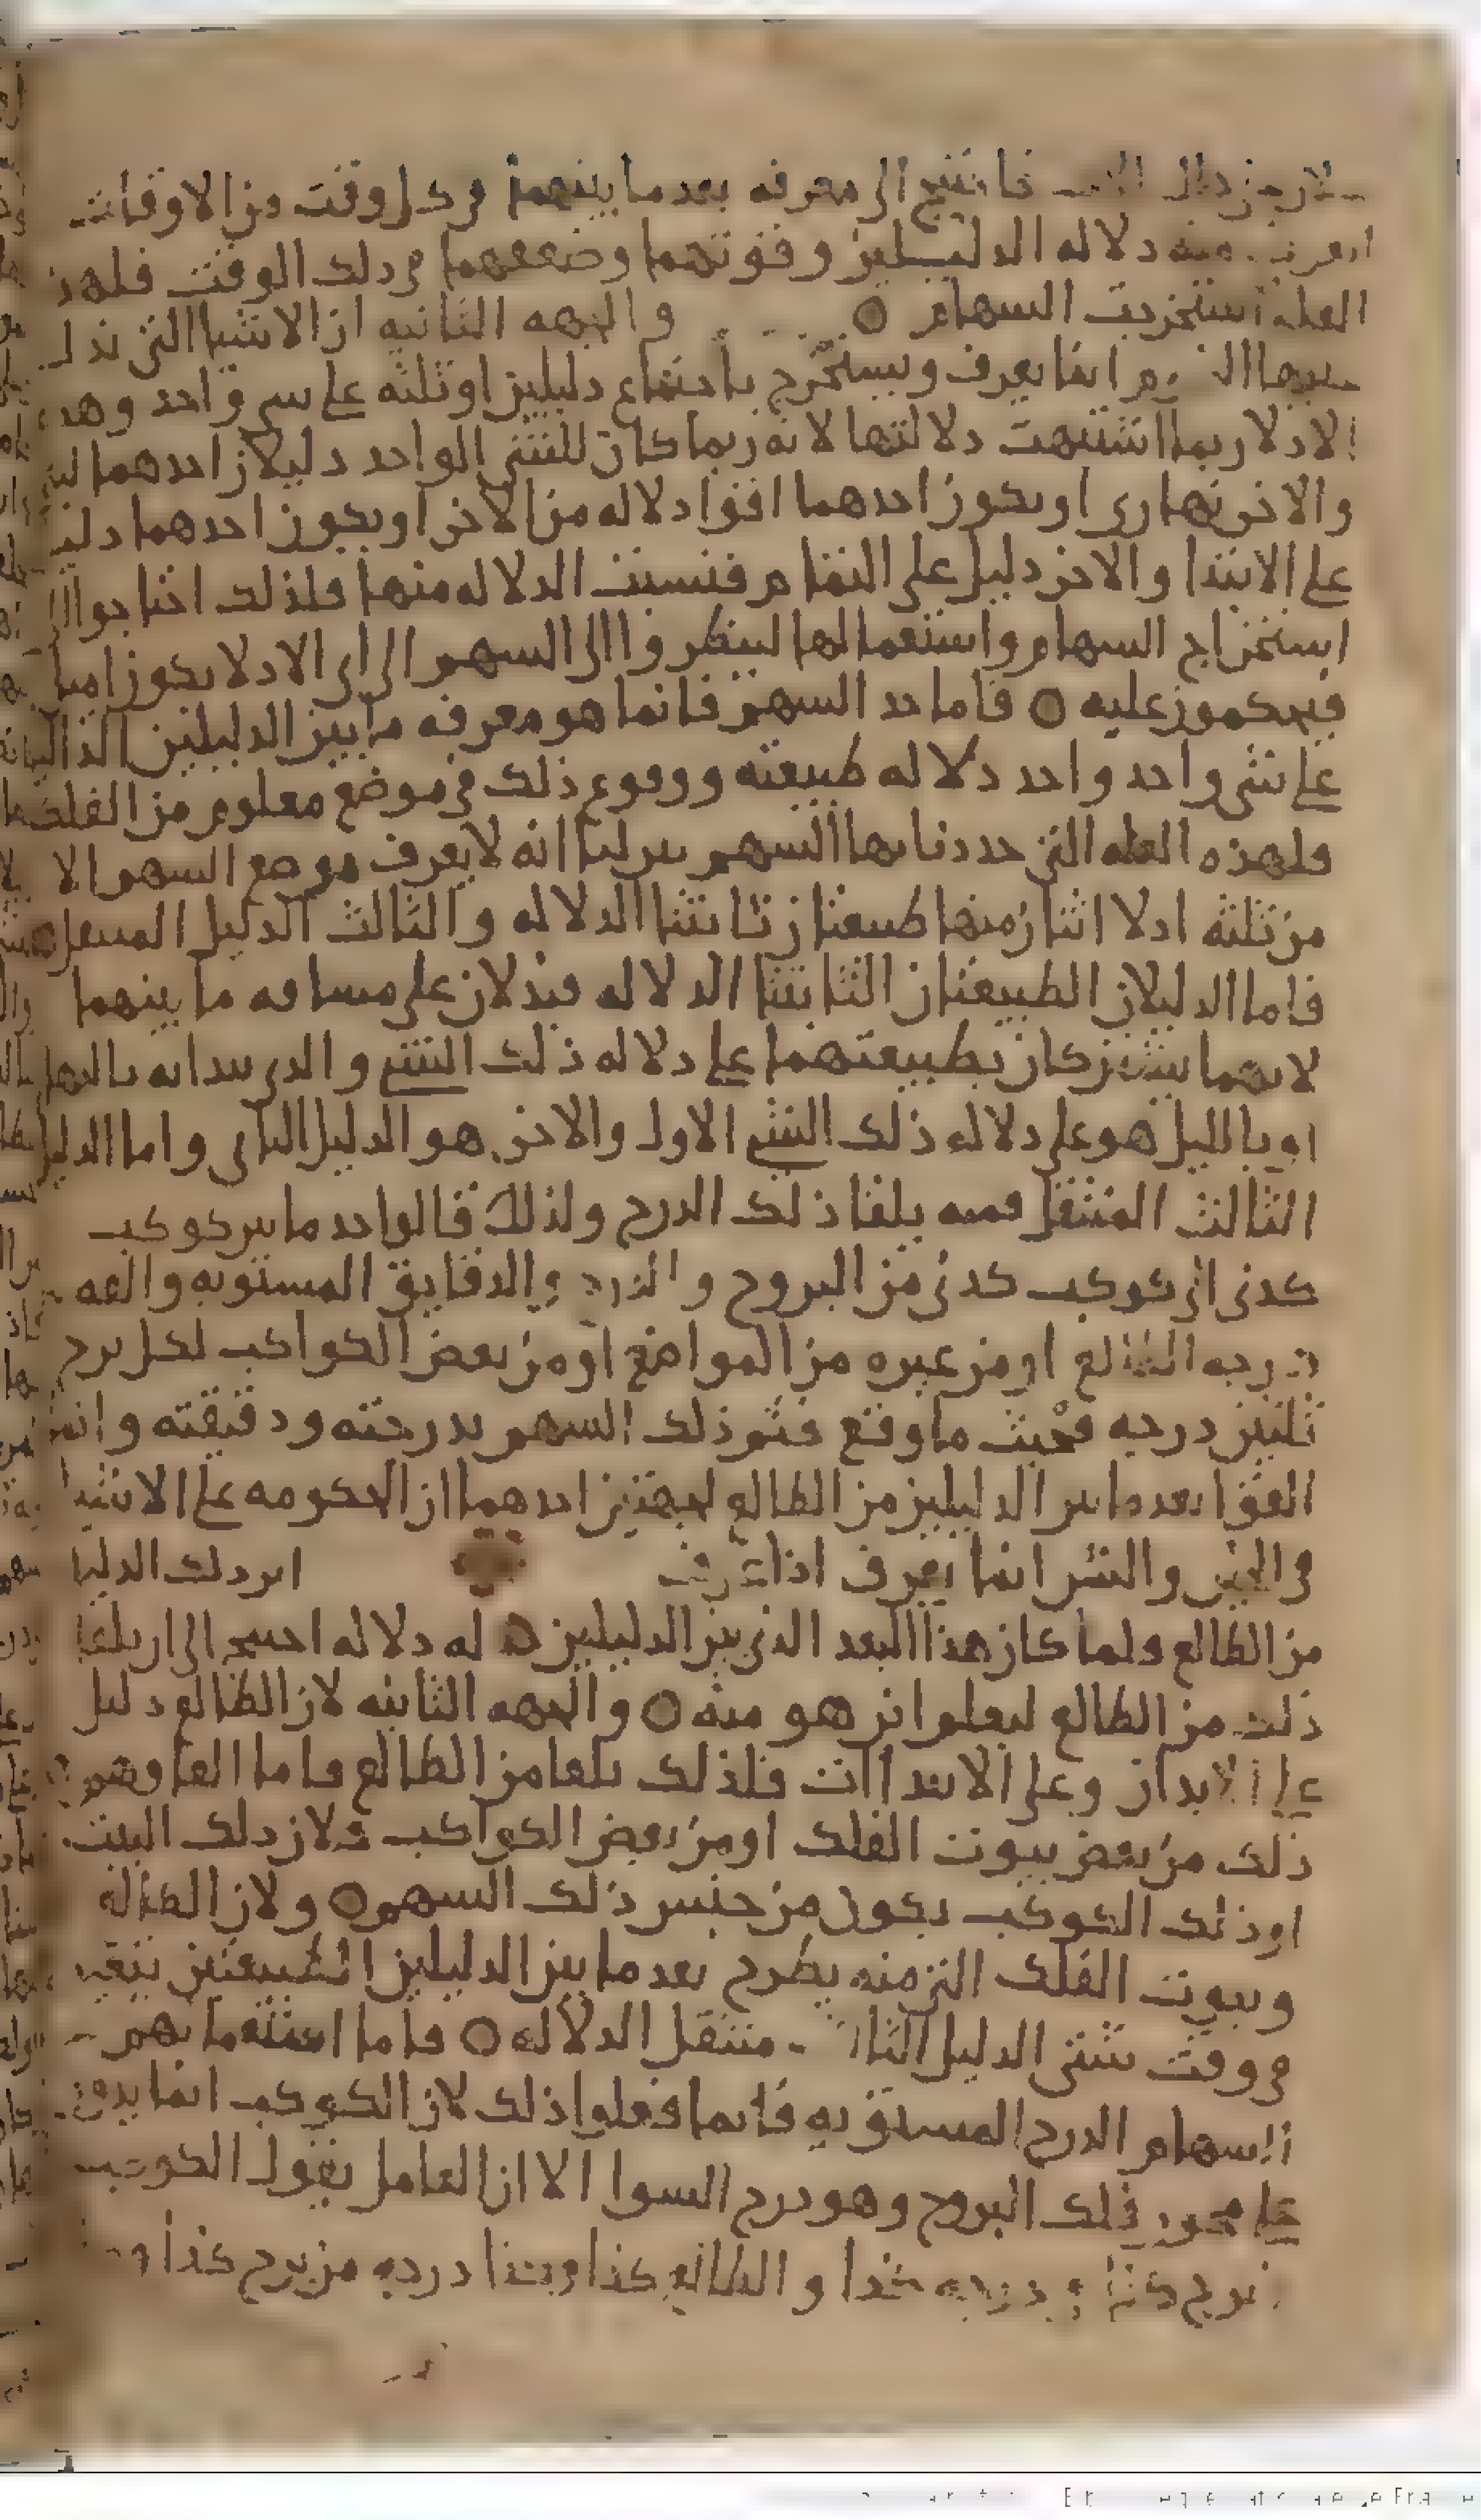 فاحتيج الى معرفه بعد ما بينهما في كل وقت من الاوقات
منه دلاله الدليلين وقوتهما وضعفهما في ذلك الوقت فلهذه
العله استخرجت السهام ٥ والجهه الثانيه ان الاشيا التي تدل
انما يعرف ويستخرج باجتماع دليلين او ثلثه على شي واحد وهذه
الادلا ربما اشتبهت دلالتها لانه ربما كان للشي الواحد دليلان احدهما
والاخر نهاري او يكون احدهما اقوا دلاله من الاخر او يكون احدهما
على الابتدا والاخر دليل على التمام فتشبت الدلاله منها فلذلك احتاجوا الى
استخراج السهام واستعمالها لينظروا الى السهم الى اي الادلا يكون
فيحكمون عليه ٥ فاما حد السهم فانما هو معرفه ما بين الدليلين
على شي واحد واحد دلاله طبيعته ووقوع ذلك في موضع معلوم من الفلك
ولهذه العله التي حددنا بها السهم انه لا يعرف موضع السهم الا
من ثلثه ادلا اثنان منها طبيعتان ثابتتا الدلاله والثالث الدليل المنتقل
فاما الدليلان الطبيعتان الثابتتا الدلاله فيدلان على مسافه ما بينهما
لانهما يشتركان بطبيعتهما على دلاله ذلك الشي والذي يبدا به بالنهار
او بالليل هو على دلاله ذلك الشي الاول والاخر هو الدليل الثاني واما الدليل
الثالث المنتقل فمنه يلقا ذلك الدرج ولذلك قالوا خد ما بين كوكب
كدى الى كوكب كدى من البروج والدرج والدقايق المستويه والقه
درجه الطالع او من غيره من المواضع او من بعض الكواكب لكل برج
ثلثين درجه فحيث ما وقع فثم ذلك السهم بدرجته ودقيقته وانما
القوا بعد ما بين الدليلين من الطالع لجهتين احدهما ان الحكومه على الاشيا
في الخير والشر انما يعرف اذا عرف اين ذلك الدليل
من الطالع ولما كان هذا البعد الذي بين الدليلين له دلاله احتيج الى ان يلقا
ذلك من الطالع ليعلم اين هو منه ٥ والجهه الثانيه لان الطالع دليل
على الابدان وعلى الابتداات فلذلك يلقا من الطالع فاما القاوهم
ذلك من بعض بيوت الفلك او من بعض الكواكب فلان ذلك البيت
او ذلك الكوكب يكون من جنس ذلك السهم ٥ ولان الطالع
وبيوت الفلك التي منه يطرح بعد ما بين الدليلين الطبيعتين
في وقت شي الدليل الثالث منتقل الدلاله ٥ فاما استعمالهم
السهام الدرج المستويه فانما فعلوا ذلك لان الكوكب انما
على محور فلك البروج وهو درج السوا الا ان العامل يقول الكوكب
برج كذا درجه كذا والطالع كذا وكذا درجه من برج كذا